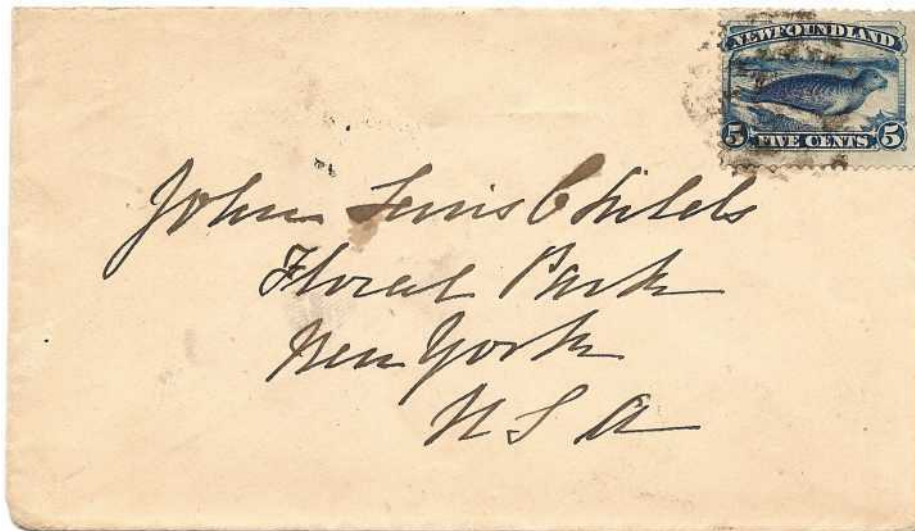 NEWFOUNDLAND
5 FIVE CENTS 5
John Lewis Childs
Floral Park
New York
U S A